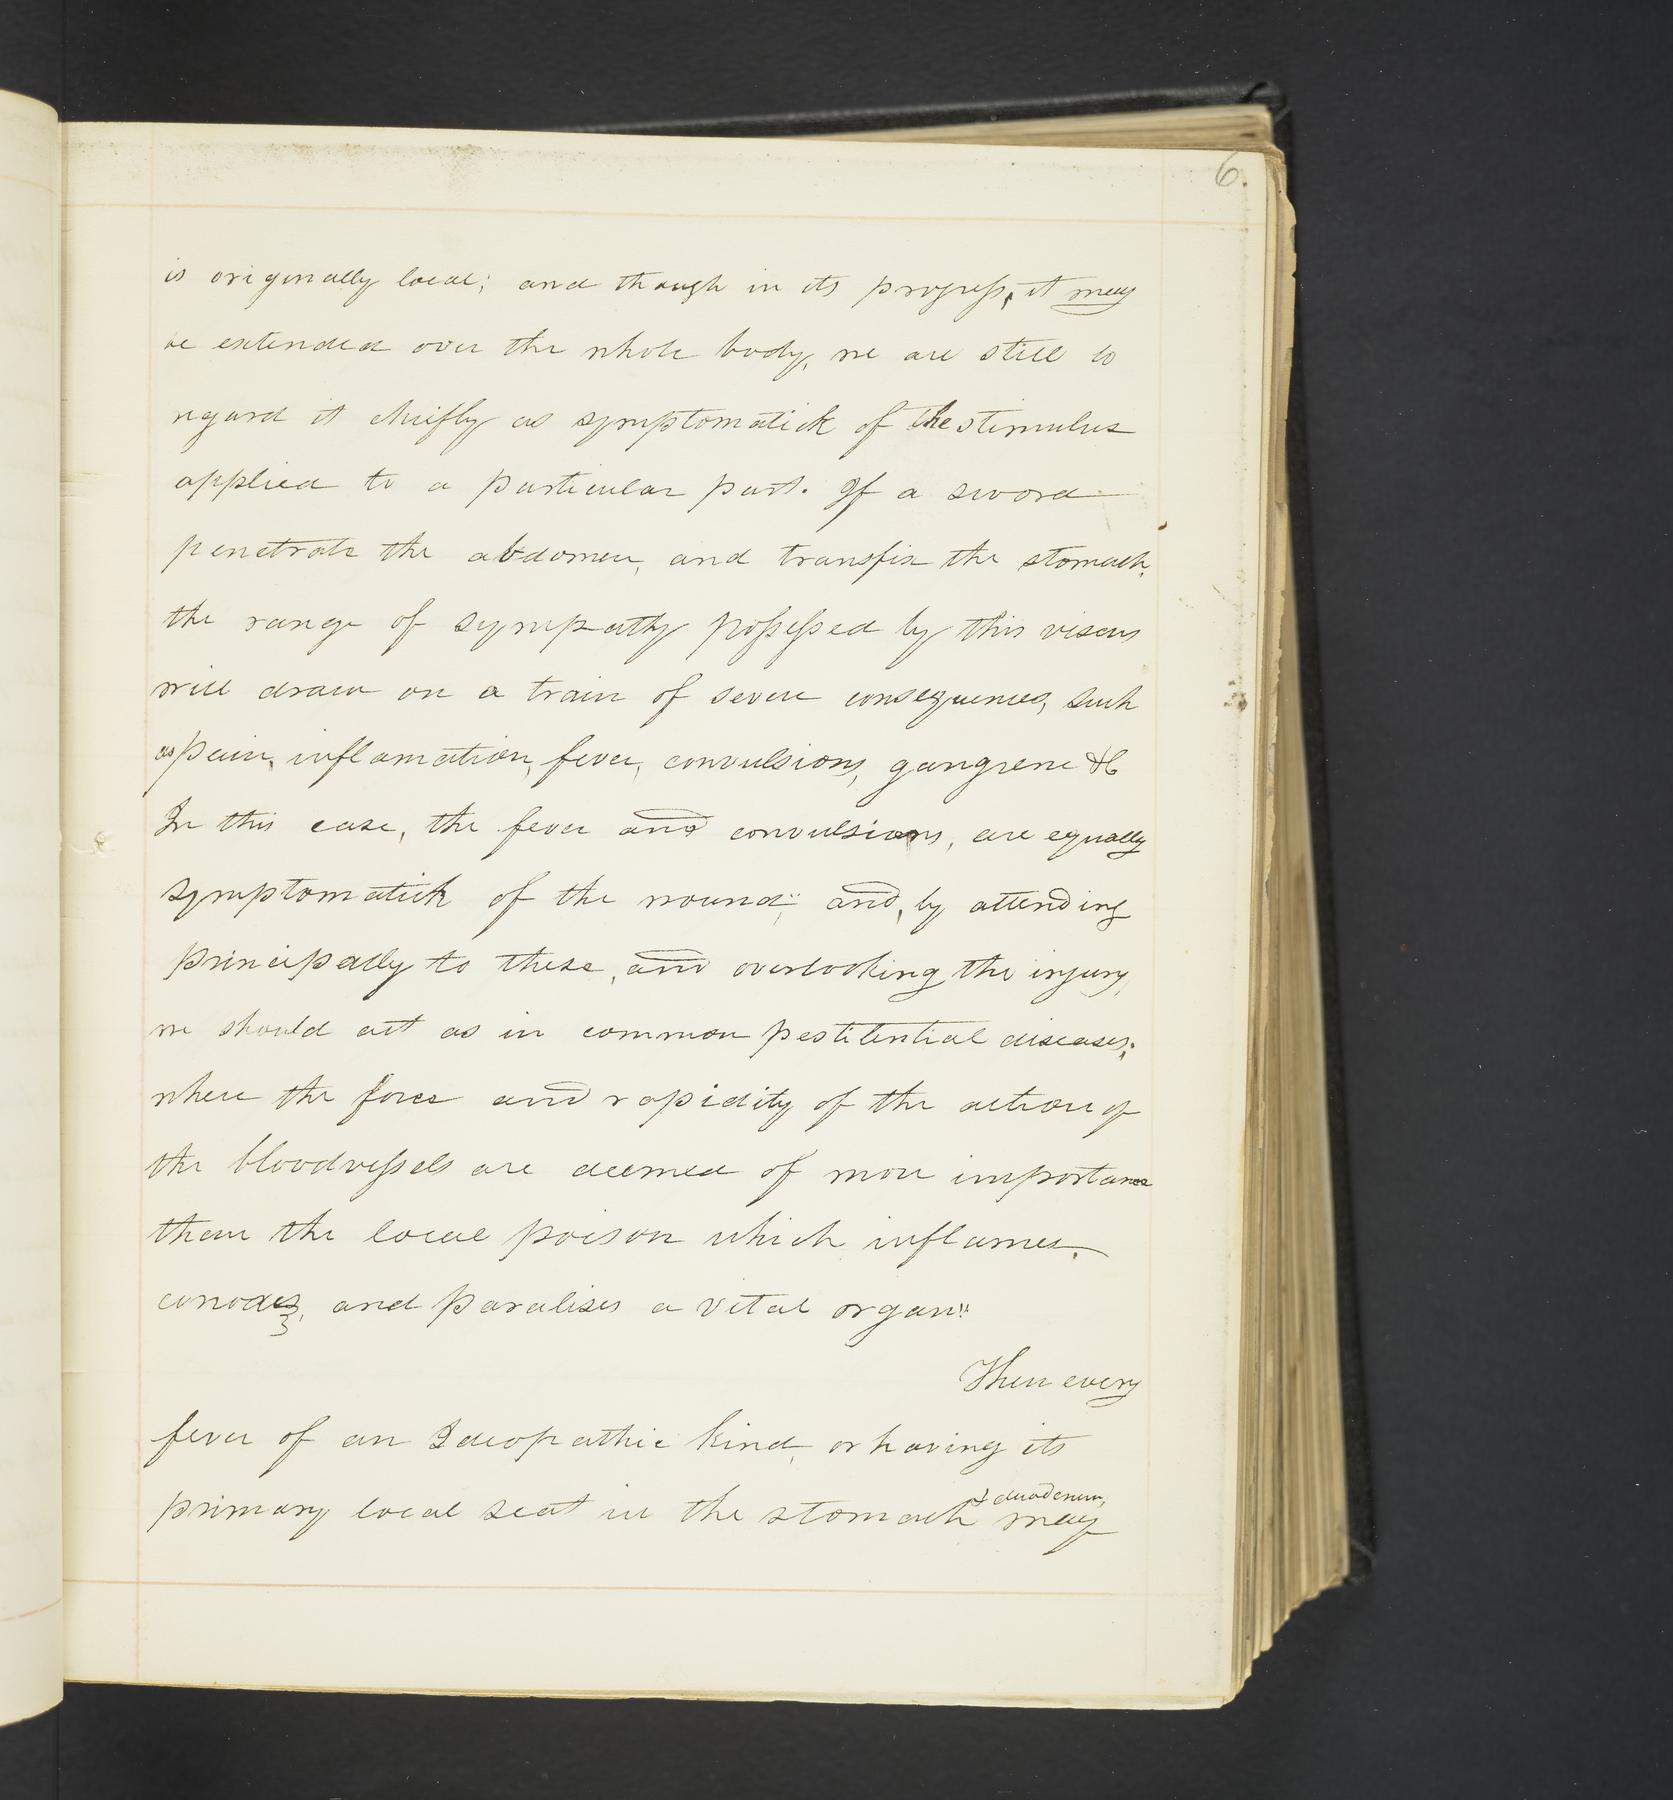 6.
is originally local; and though in its progress, it may
be extended over the whole body, we are still to
regard it chiefly as symptomatick of the stimulus
applied to a particular part. If a sword
penetrate the abdomen, and transfix the stomach,
the range of sympathy possessed by this viscus
will draw on a train of severe consequences, such
as pain, inflamation, fever, convulsions, gangrene &c
In this case, the fever and convulsions, are equally
symptomatick of the wound; and, by attending
principally to these, and overlooking the injury,
we should act as in common pestilential diseases;
where the force and rapidity of the action of
the bloodvessels are deemed of more importance
than the local poison which inflames,
corrodes, and paralises a vital organ"
Then every
fever of an Ideopathic kind, or having its
primary local seat in the stomach & duodenum, may